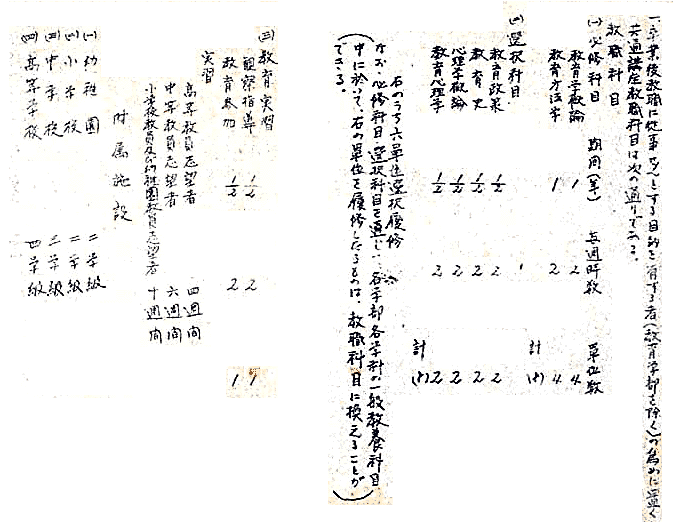 一、卒業後教職に従事せんとする目的を有する者(教育学部を除く)の為めに置く
共通講座教職科目は次の通りである。
教職科目
期間(年) 毎週時数 単位数
(一)必修科目
教育学概論 1 2 4
教育方法学 1 2 4
計(8)
(二)選択科目
教育政策 1/2 2 2
教育史 1/2 2 2
心理学概論 1/2 2 2
教育心理学 1/2 2 2
計(8)
右のうち六単位選択履修
(なお、必修科目・選択科目を通じ、各学部各学科の一般教養科目
中に於いて、右の単位を履修したるものは、教職科目に換えることが
できる。)
(三)教育実習
観察指導 1/2 2 1
教育参加 1/2 2 1
実習
高等教員志望者 四週間
中等教員志望者 六週間
小学校教員及び幼稚園教員志望者 十週間
附属施設
(一)幼稚園 二学級
(二)小学校 二学級
(三)中学校 三学級
(四)高等学校 四学級